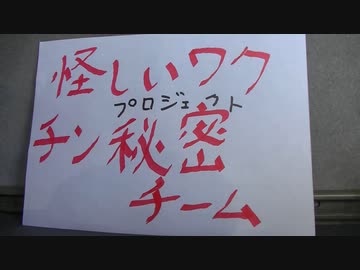 怪しいワク
プロジェクト
チン秘密
チーム